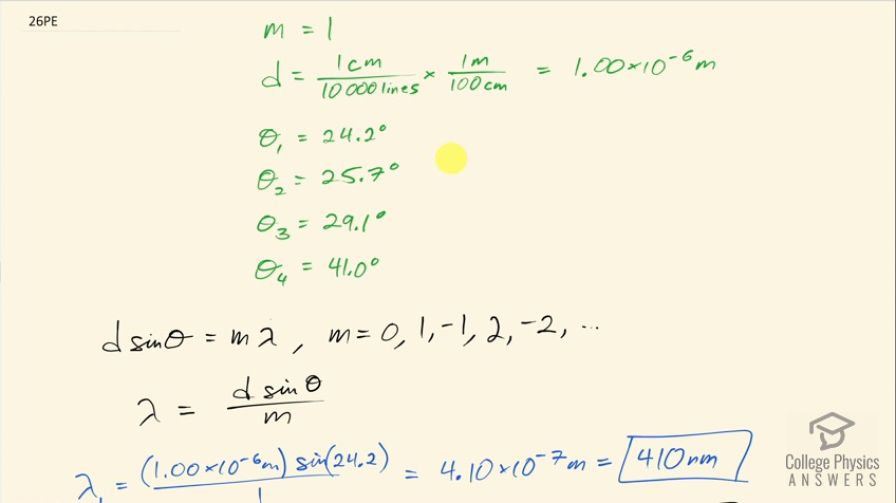 26PE
m = 1
d = 1cm/10000lines × 1m/100cm = 1.00×10⁻⁶ m
θ₁ = 24.2°
θ₂ = 25.7°
θ₃ = 29.1°
θ₄ = 41.0°
d sinθ = mλ, m = 0, 1, -1, 2, -2, ...
λ = d sinθ/m
λ₁ = (1.00×10⁻⁶m) sin(24.2)/1 = 4.10×10⁻⁷m = 410nm
College Physics
ANSWERS